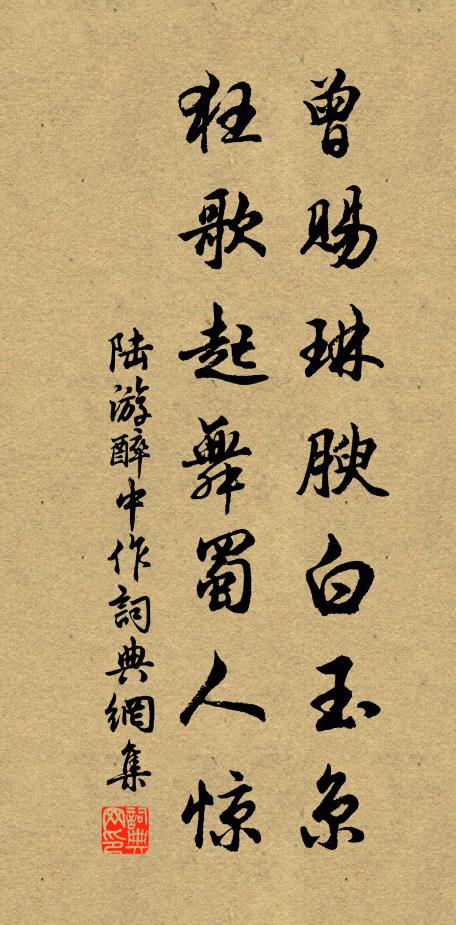 曾赐琳腴白玉京
狂歌起舞蜀人惊
陆游醉中作詞典網集
詞典网印